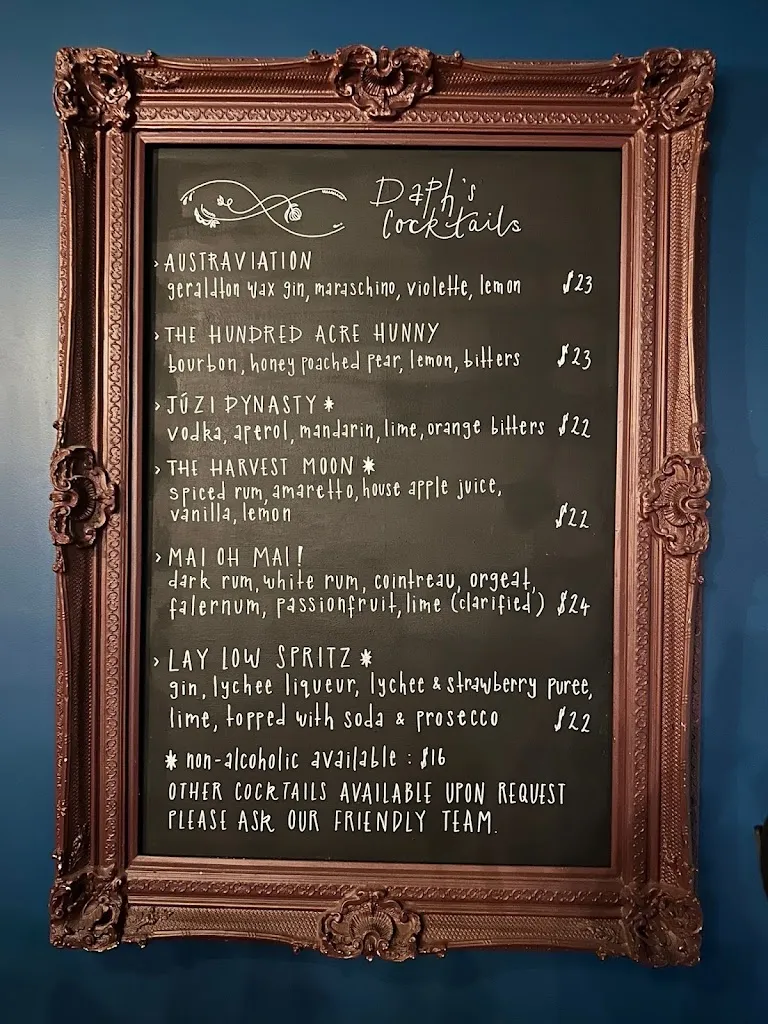 Daph's
Cocktails
› AUSTRAVIATION
geraldton wax gin, maraschino, violette, lemon $23
› THE HUNDRED ACRE HUNNY
bourbon, honey poached pear, lemon, bitters $23
› JÚZI DYNASTY *
vodka, aperol, mandarin, lime, orange bitters $22
› THE HARVEST MOON *
spiced rum, amaretto, house apple juice,
vanilla, lemon $22
› MAI OH MAI!
dark rum, white rum, cointreau, orgeat,
falernum, passionfruit, lime (clarified) $24
› LAY LOW SPRITZ *
gin, lychee liqueur, lychee & strawberry puree,
lime, topped with soda & prosecco $22
* non-alcoholic available : $16
OTHER COCKTAILS AVAILABLE UPON REQUEST
PLEASE ASK OUR FRIENDLY TEAM.